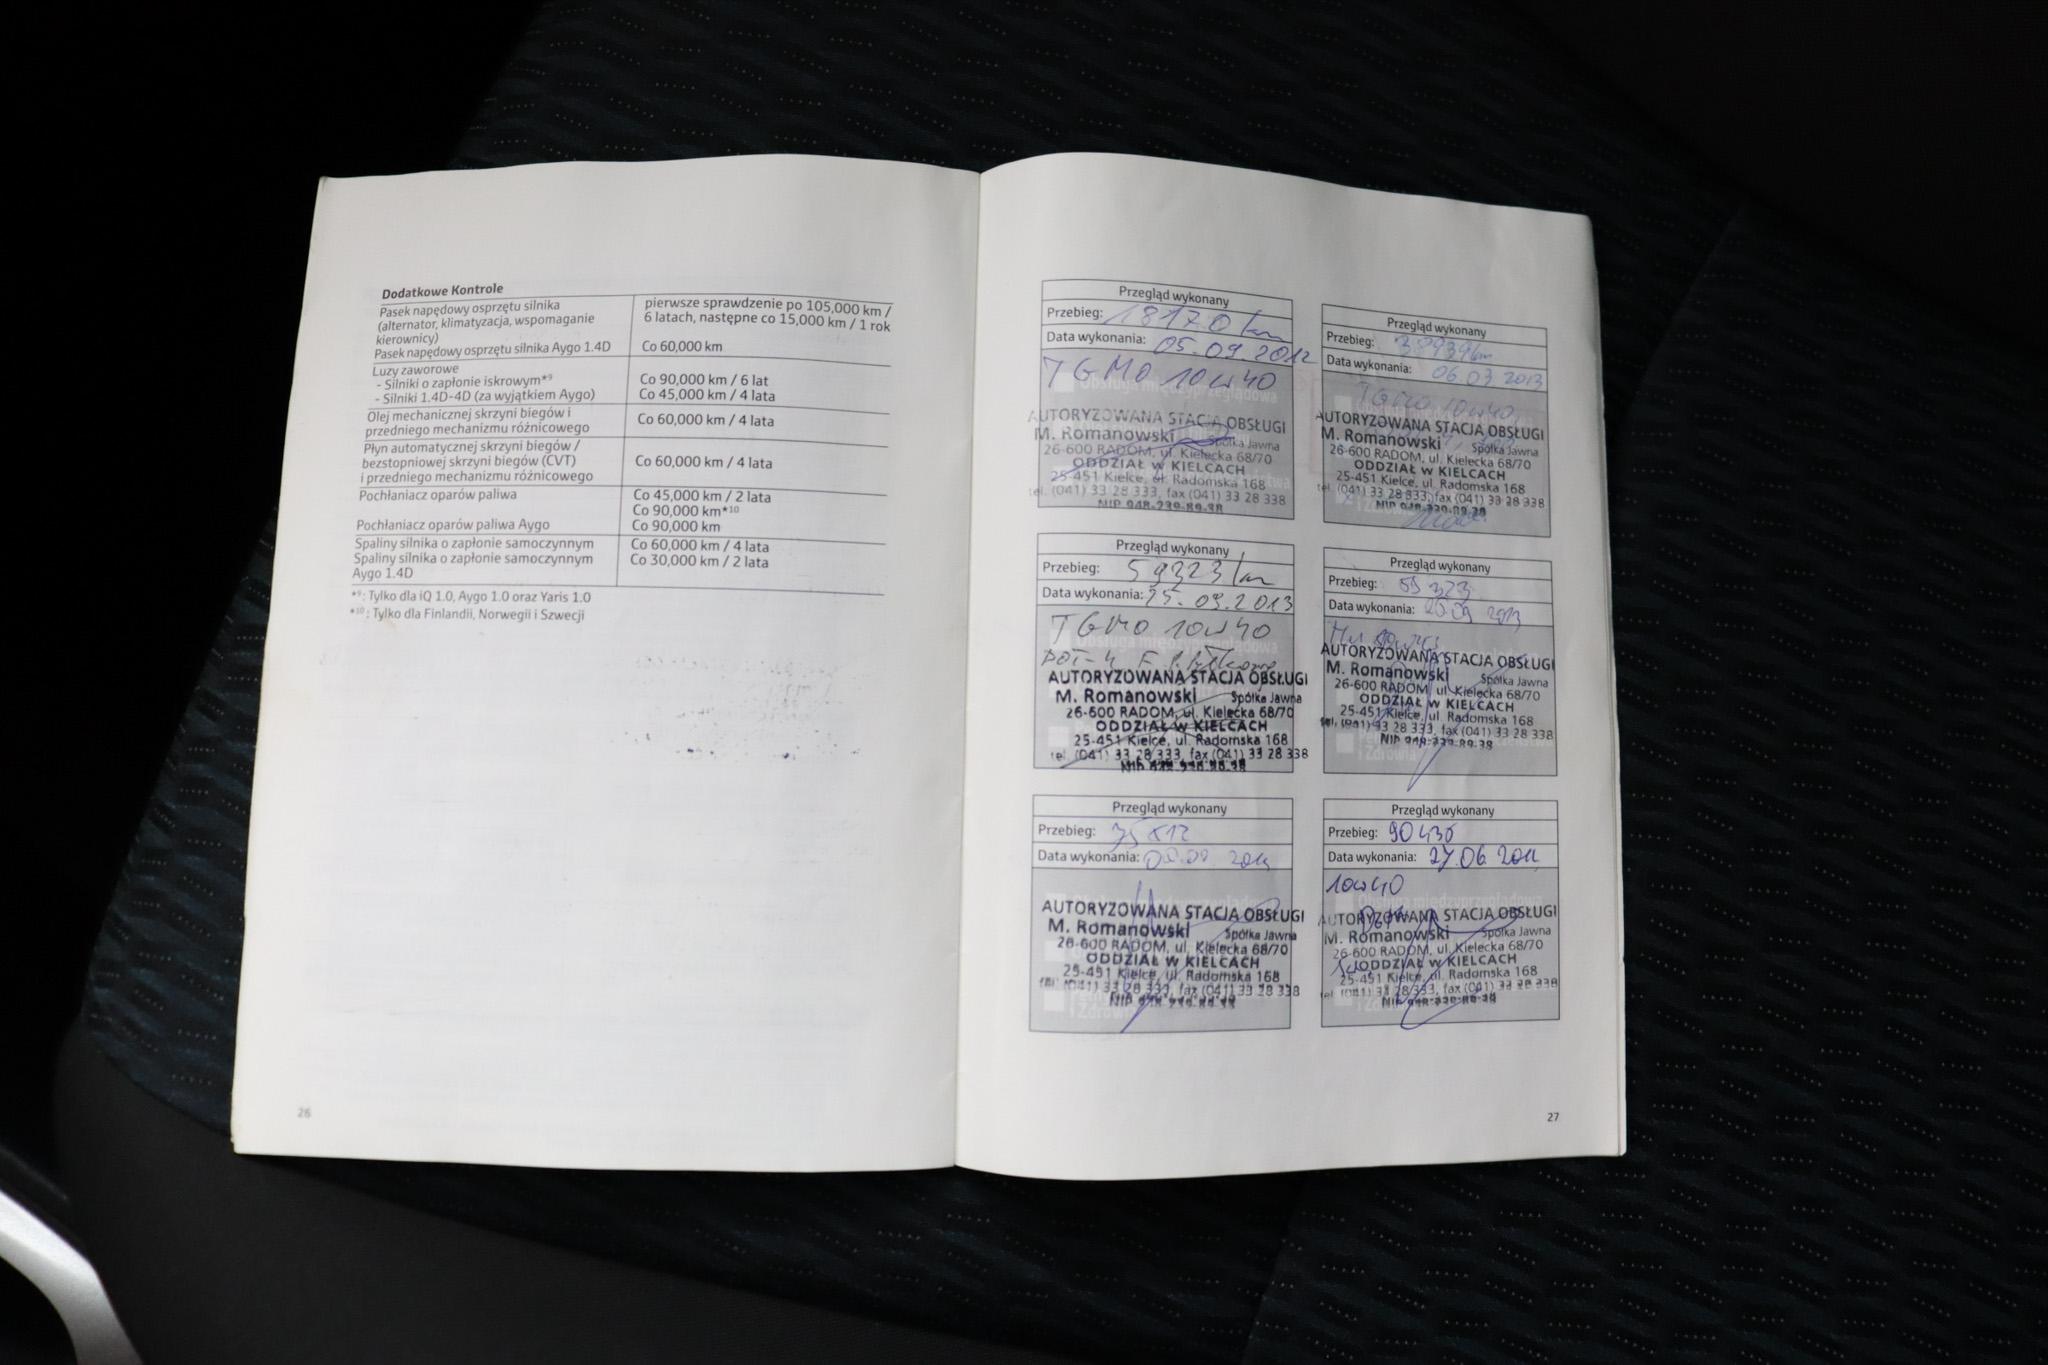 Dodatkowe Kontrole
Pasek napędowy osprzętu silnika
(alternator, klimatyzacja, wspomaganie
kierownicy)
pierwsze sprawdzenie po 105,000 km /
6 latach, następne co 15,000 km / 1 rok
Pasek napędowy osprzętu silnika Aygo 1.4D Co 60,000 km
Luzy zaworowe
- Silniki o zapłonie iskrowym*9 Co 90,000 km / 6 lat
- Silniki 1.4D-4D (za wyjątkiem Aygo) Co 45,000 km / 4 lata
Olej mechanicznej skrzyni biegów i
przedniego mechanizmu różnicowego
Co 60,000 km / 4 lata
Płyn automatycznej skrzyni biegów /
bezstopniowej skrzyni biegów (CVT)
i przedniego mechanizmu różnicowego
Co 60,000 km / 4 lata
Pochłaniacz oparów paliwa Co 45,000 km / 2 lata
Co 90,000 km*10
Pochłaniacz oparów paliwa Aygo Co 90,000 km
Spaliny silnika o zapłonie samoczynnym Co 60,000 km / 4 lata
Spaliny silnika o zapłonie samoczynnym Co 30,000 km / 2 lata
Aygo 1.4D
*9: Tylko dla iQ 1.0, Aygo 1.0 oraz Yaris 1.0
*10: Tylko dla Finlandii, Norwegii i Szwecji
26
Przegląd wykonany
Przebieg: 18170 km
Data wykonania: 05.09.2012
TGMO 10w40
Obsługa międzyprzeglądowa
AUTORYZOWANA STACJA OBSŁUGI
M. Romanowski Spółka Jawna
26-600 RADOM, ul. Kielecka 68/70
ODDZIAŁ w KIELCACH
25-451 Kielce, ul. Radomska 168
tel. (041) 33 28 333, fax (041) 33 28 338
NIP 948-239-89-38
Przegląd wykonany
Przebieg:
Data wykonania: 06.03 2013
TGMO 10w40
AUTORYZOWANA STACJA OBSŁUGI
M. Romanowski Spółka Jawna
26-600 RADOM, ul. Kielecka 68/70
ODDZIAŁ w KIELCACH
25-451 Kielce, ul. Radomska 168
tel. (041) 33 28 333, fax (041) 33 28 338
NIP 948-239-89-38
Przegląd wykonany
Przebieg: 59323 km
Data wykonania: 25.09.2013
TGMO 10w40
Obsługa międzyprzeglądowa
DOT-4
AUTORYZOWANA STACJA OBSŁUGI
M. Romanowski Spółka Jawna
26-600 RADOM, ul. Kielecka 68/70
ODDZIAŁ w KIELCACH
25-451 Kielce, ul. Radomska 168
tel. (041) 33 28 333, fax (041) 33 28 338
Przegląd wykonany
Przebieg: 59 323
Data wykonania: 2013
AUTORYZOWANA STACJA OBSŁUGI
M. Romanowski Spółka Jawna
26-600 RADOM, ul. Kielecka 68/70
ODDZIAŁ w KIELCACH
25-451 Kielce, ul. Radomska 168
tel. (041) 33 28 333, fax (041) 33 28 338
NIP 948-239-89-38
i Zdrowia
Przegląd wykonany
Przebieg:
Data wykonania:
AUTORYZOWANA STACJA OBSŁUGI
M. Romanowski Spółka Jawna
26-600 RADOM, ul. Kielecka 68/70
ODDZIAŁ w KIELCACH
25-451 Kielce, ul. Radomska 168
tel. (041) 33 28 333, fax (041) 33 28 338
i Zdrowia
Przegląd wykonany
Przebieg: 90436
Data wykonania: 27.06 2014
10w40
Obsługa międzyprzeglądowa
AUTORYZOWANA STACJA OBSŁUGI
M. Romanowski Spółka Jawna
26-600 RADOM, ul. Kielecka 68/70
ODDZIAŁ w KIELCACH
25-451 Kielce, ul. Radomska 168
tel. (041) 33 28 333, fax (041) 33 28 338
NIP 948-239-89-38
i Zdrowia
27